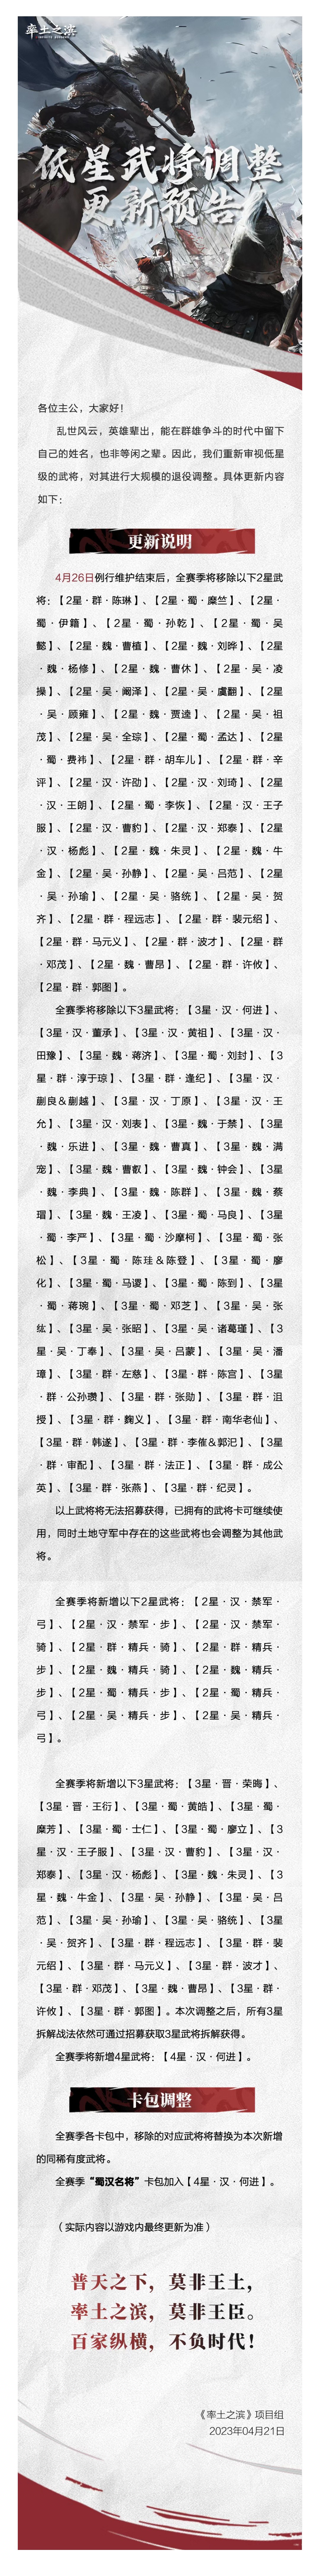 率土之滨
低星武将调整
更新预告
各位主公，大家好！
乱世风云，英雄辈出，能在群雄争斗的时代中留下
自己的姓名，也非等闲之辈。因此，我们重新审视低星
级的武将，对其进行大规模的退役调整。具体更新内容
如下：
更新说明
4月26日例行维护结束后，全赛季将移除以下2星武
将：【2星·群·陈琳】、【2星·蜀·糜竺】、【2星·
蜀·伊籍】、【2星·蜀·孙乾】、【2星·蜀·吴
懿】、【2星·魏·曹植】、【2星·魏·刘晔】、【2星
·魏·杨修】、【2星·魏·曹休】、【2星·吴·凌
操】、【2星·吴·阚泽】、【2星·吴·虞翻】、【2星
·吴·顾雍】、【2星·魏·贾逵】、【2星·吴·祖
茂】、【2星·吴·全琮】、【2星·蜀·孟达】、【2星
·蜀·费祎】、【2星·群·胡车儿】、【2星·群·辛
评】、【2星·汉·许劭】、【2星·汉·刘琦】、【2星
·汉·王朗】、【2星·蜀·李恢】、【2星·汉·王子
服】、【2星·汉·曹豹】、【2星·汉·郑泰】、【2星
·汉·杨彪】、【2星·魏·朱灵】、【2星·魏·牛
金】、【2星·吴·孙静】、【2星·吴·吕范】、【2星
·吴·孙瑜】、【2星·吴·骆统】、【2星·吴·贺
齐】、【2星·群·程远志】、【2星·群·裴元绍】、
【2星·群·马元义】、【2星·群·波才】、【2星·群
·邓茂】、【2星·魏·曹昂】、【2星·群·许攸】、
【2星·群·郭图】。
全赛季将移除以下3星武将：【3星·汉·何进】、
【3星·汉·董承】、【3星·汉·黄祖】、【3星·汉·
田豫】、【3星·魏·蒋济】、【3星·蜀·刘封】、【3
星·群·淳于琼】、【3星·群·逢纪】、【3星·汉·
蒯良&蒯越】、【3星·汉·丁原】、【3星·汉·王
允】、【3星·汉·刘表】、【3星·魏·于禁】、【3星
·魏·乐进】、【3星·魏·曹真】、【3星·魏·满
宠】、【3星·魏·曹叡】、【3星·魏·钟会】、【3星
·魏·李典】、【3星·魏·陈群】、【3星·魏·蔡
瑁】、【3星·魏·王凌】、【3星·蜀·马良】、【3星
·蜀·李严】、【3星·蜀·沙摩柯】、【3星·蜀·张
松】、【3星·蜀·陈珪&陈登】、【3星·蜀·廖
化】、【3星·蜀·马谡】、【3星·蜀·陈到】、【3星
·蜀·蒋琬】、【3星·蜀·邓芝】、【3星·吴·张
纮】、【3星·吴·张昭】、【3星·吴·诸葛瑾】、【3
星·吴·丁奉】、【3星·吴·吕蒙】、【3星·吴·潘
璋】、【3星·群·左慈】、【3星·群·陈宫】、【3星
·群·公孙瓒】、【3星·群·张勋】、【3星·群·沮
授】、【3星·群·麴义】、【3星·群·南华老仙】、
【3星·群·韩遂】、【3星·群·李傕&郭汜】、【3星
·群·审配】、【3星·群·法正】、【3星·群·成公
英】、【3星·群·张燕】、【3星·群·纪灵】。
以上武将将无法招募获得，已拥有的武将卡可继续使
用，同时土地守军中存在的这些武将也会调整为其他武
将。
全赛季将新增以下2星武将：【2星·汉·禁军·
弓】、【2星·汉·禁军·步】、【2星·汉·禁军·
骑】、【2星·群·精兵·骑】、【2星·群·精兵·
步】、【2星·魏·精兵·骑】、【2星·魏·精兵·
步】、【2星·蜀·精兵·步】、【2星·蜀·精兵·
弓】、【2星·吴·精兵·步】、【2星·吴·精兵·
弓】。
全赛季将新增以下3星武将：【3星·晋·荣晦】、
【3星·晋·王衍】、【3星·蜀·黄皓】、【3星·蜀·
糜芳】、【3星·蜀·士仁】、【3星·蜀·廖立】、【3
星·汉·王子服】、【3星·汉·曹豹】、【3星·汉·
郑泰】、【3星·汉·杨彪】、【3星·魏·朱灵】、【3
星·魏·牛金】、【3星·吴·孙静】、【3星·吴·吕
范】、【3星·吴·孙瑜】、【3星·吴·骆统】、【3星
·吴·贺齐】、【3星·群·程远志】、【3星·群·裴
元绍】、【3星·群·马元义】、【3星·群·波才】、
【3星·群·邓茂】、【3星·魏·曹昂】、【3星·群·
许攸】、【3星·群·郭图】。本次调整之后，所有3星
拆解战法依然可通过招募获取3星武将拆解获得。
全赛季将新增4星武将：【4星·汉·何进】。
卡包调整
全赛季各卡包中，移除的对应武将将替换为本次新增
的同稀有度武将。
全赛季“蜀汉名将”卡包加入【4星·汉·何进】。
（实际内容以游戏内最终更新为准）
普天之下，莫非王土，
率土之滨，莫非王臣。
百家纵横，不负时代！
《率土之滨》项目组
2023年04月21日